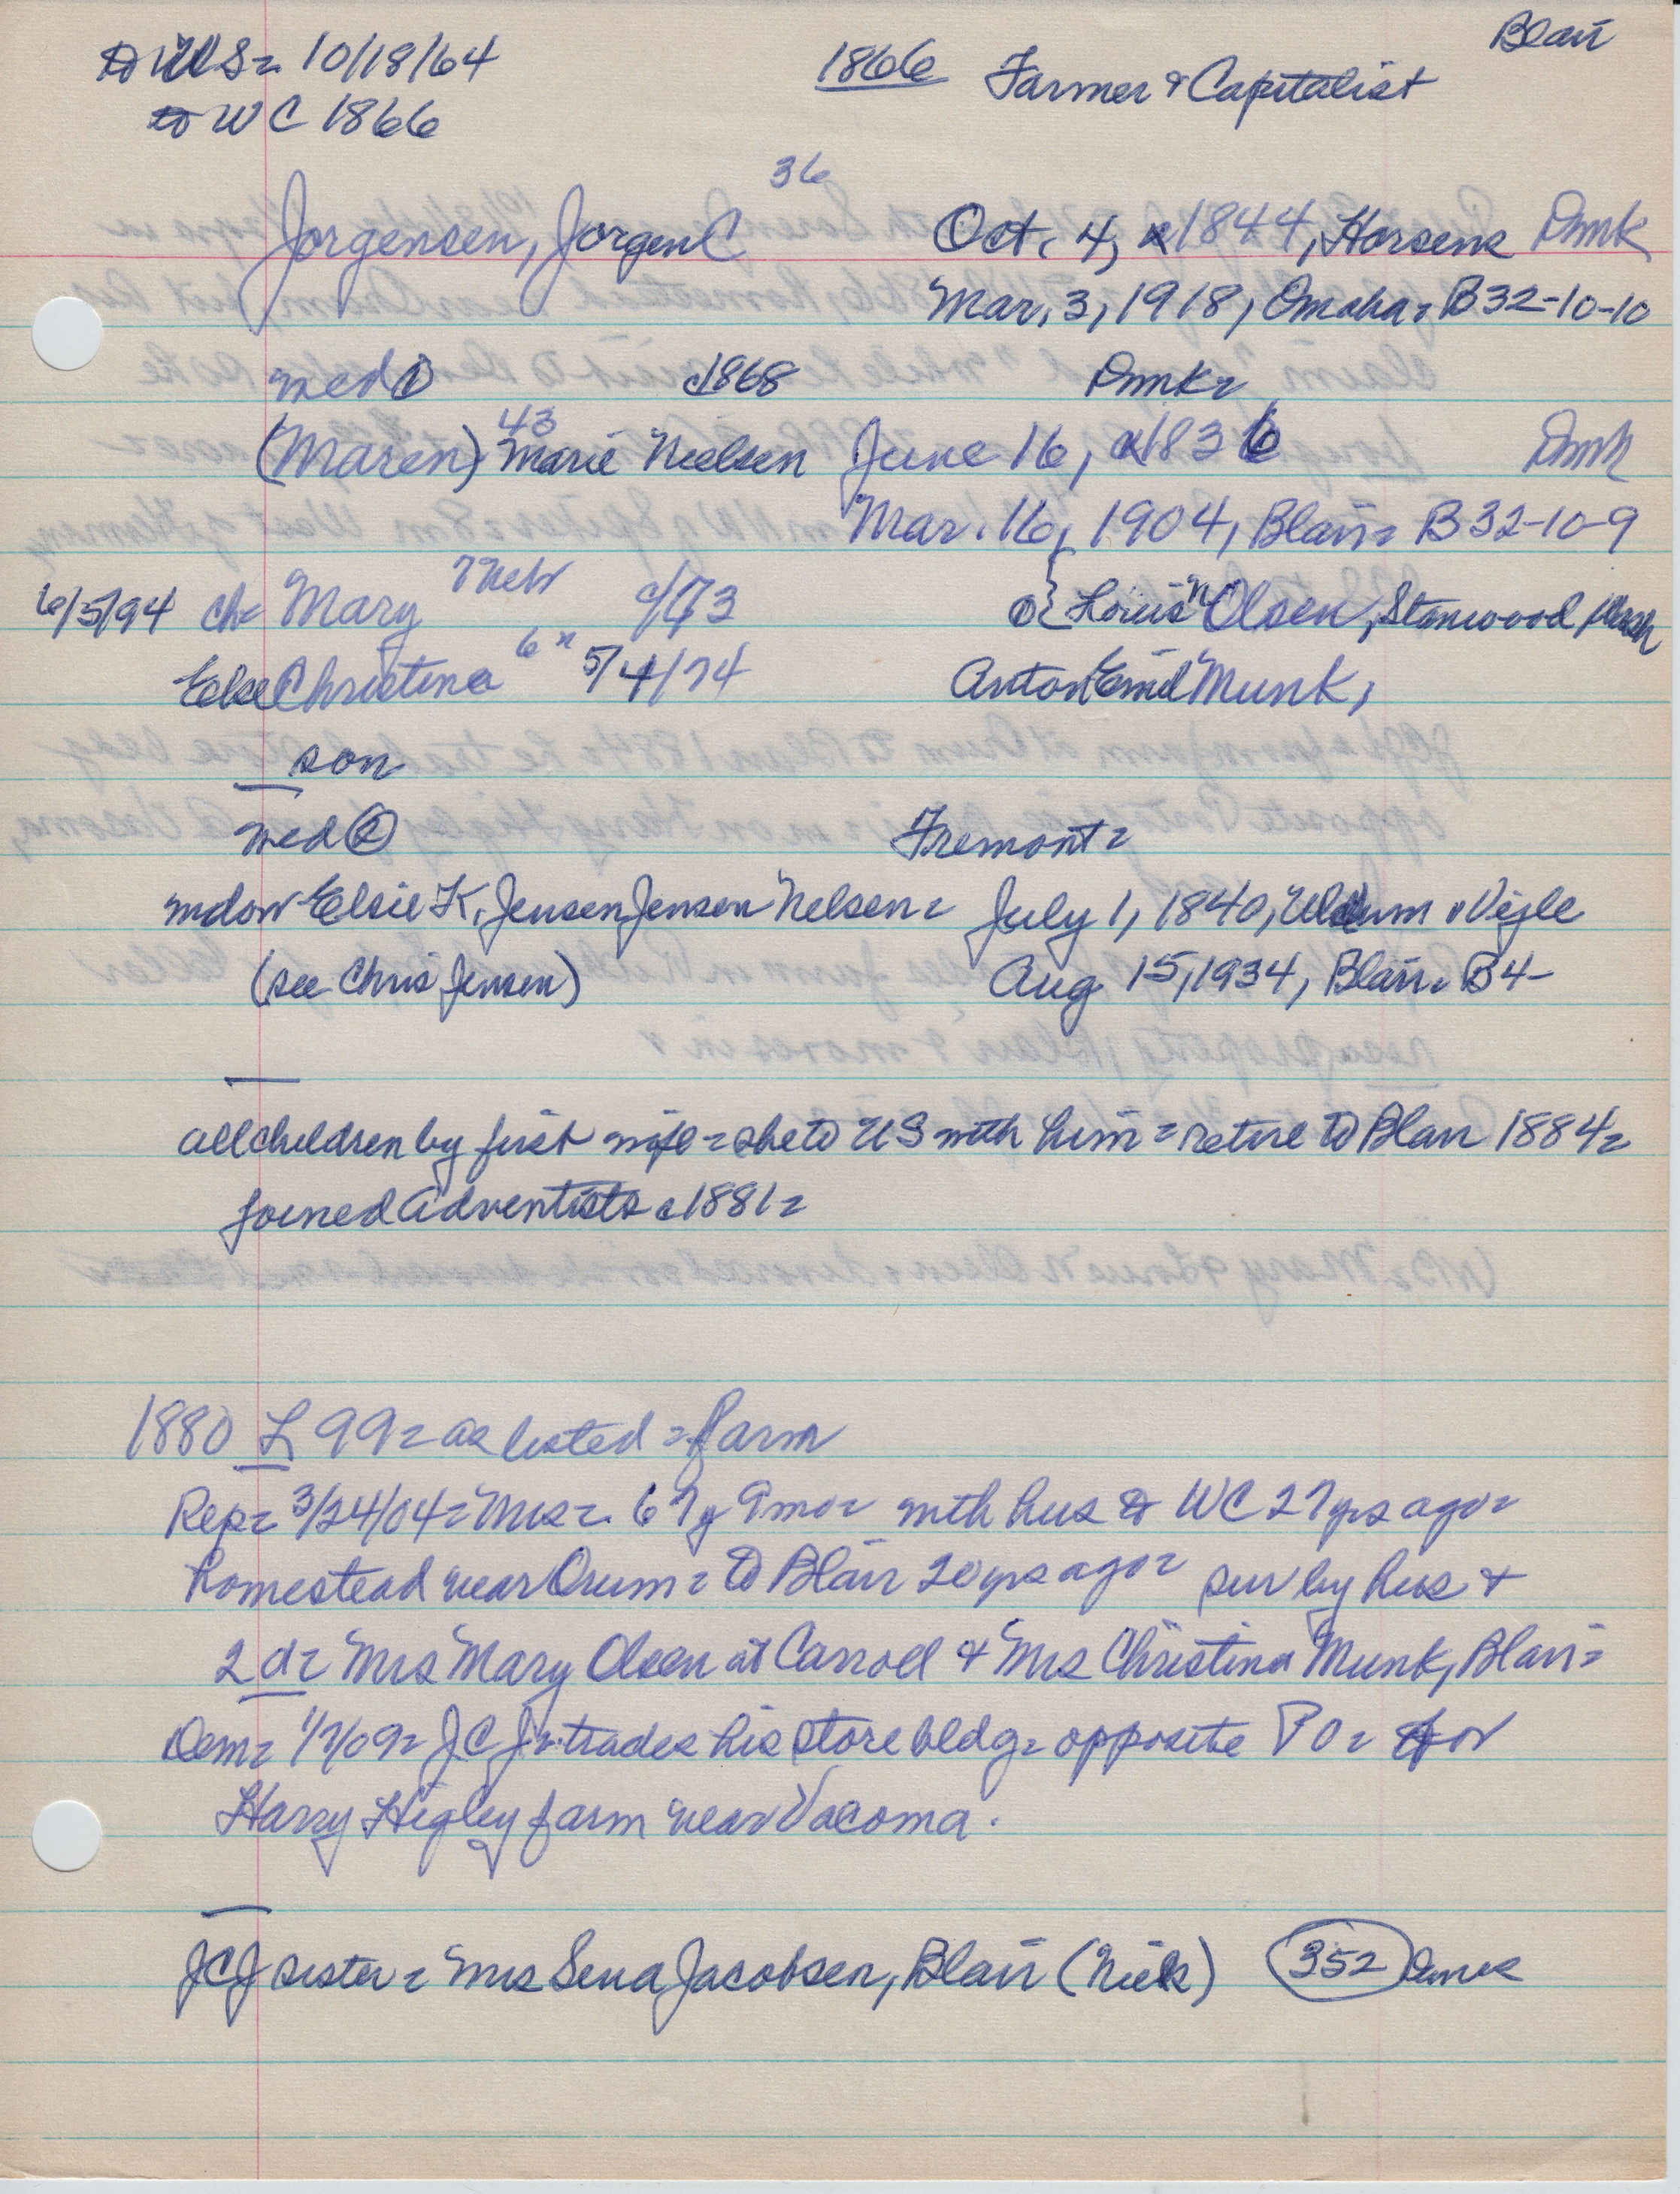 Blair
to US = 10/18/64 1866 Farmer & Capitalist
to WC 1866
36
Jorgensen, Jorgen C Oct. 4, 1844, Horsens Dmk
Mar. 3, 1918, Omaha = B32-10-10
med ① c1868 Dmk =
43
(Maren) Marie Nielsen June 16, c1836 Dmk
Mar. 16, 1904, Blair = B 32-10-9
6/5/94 ch = Mary 7 Neb c/73 ①{ Louis N Olsen, Stanwood Wash
Else Christina 6 " 5/4/74 Anton Emil Munk,
son
med ② Fremont =
widow Elsie K. Jensen Jensen Nelsen = July 1, 1840, Uldum, Vejle
(see Chris Jensen) Aug 15, 1934, Blair = B4-
all children by first wife = she to US with him = retire to Blair 1884 =
joined Adventists c1881 =
1880 L 99 = as listed = farm
Rep = 3/24/04 = Mrs = 67y 9mo = with hus to WC 27 yrs ago =
homestead near Orum = to Blair 20 yrs ago = sur by hus +
2 d = Mrs Mary Olsen at Carroll + Mrs Christina Munk, Blair =
Dem = 1/7/09 = JCJ = trades his store bldg = opposite PO = for
Harry Higley farm near Vacoma.
JCJ sister = Mrs Sena Jacobsen, Blair (Nick) 352 Danes